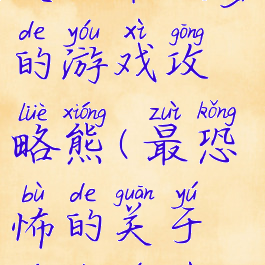 de yóu xì gōng
的游戏攻
lüè xióng zuì kǒng
略熊(最恐
bù de guān yú
怖的关于